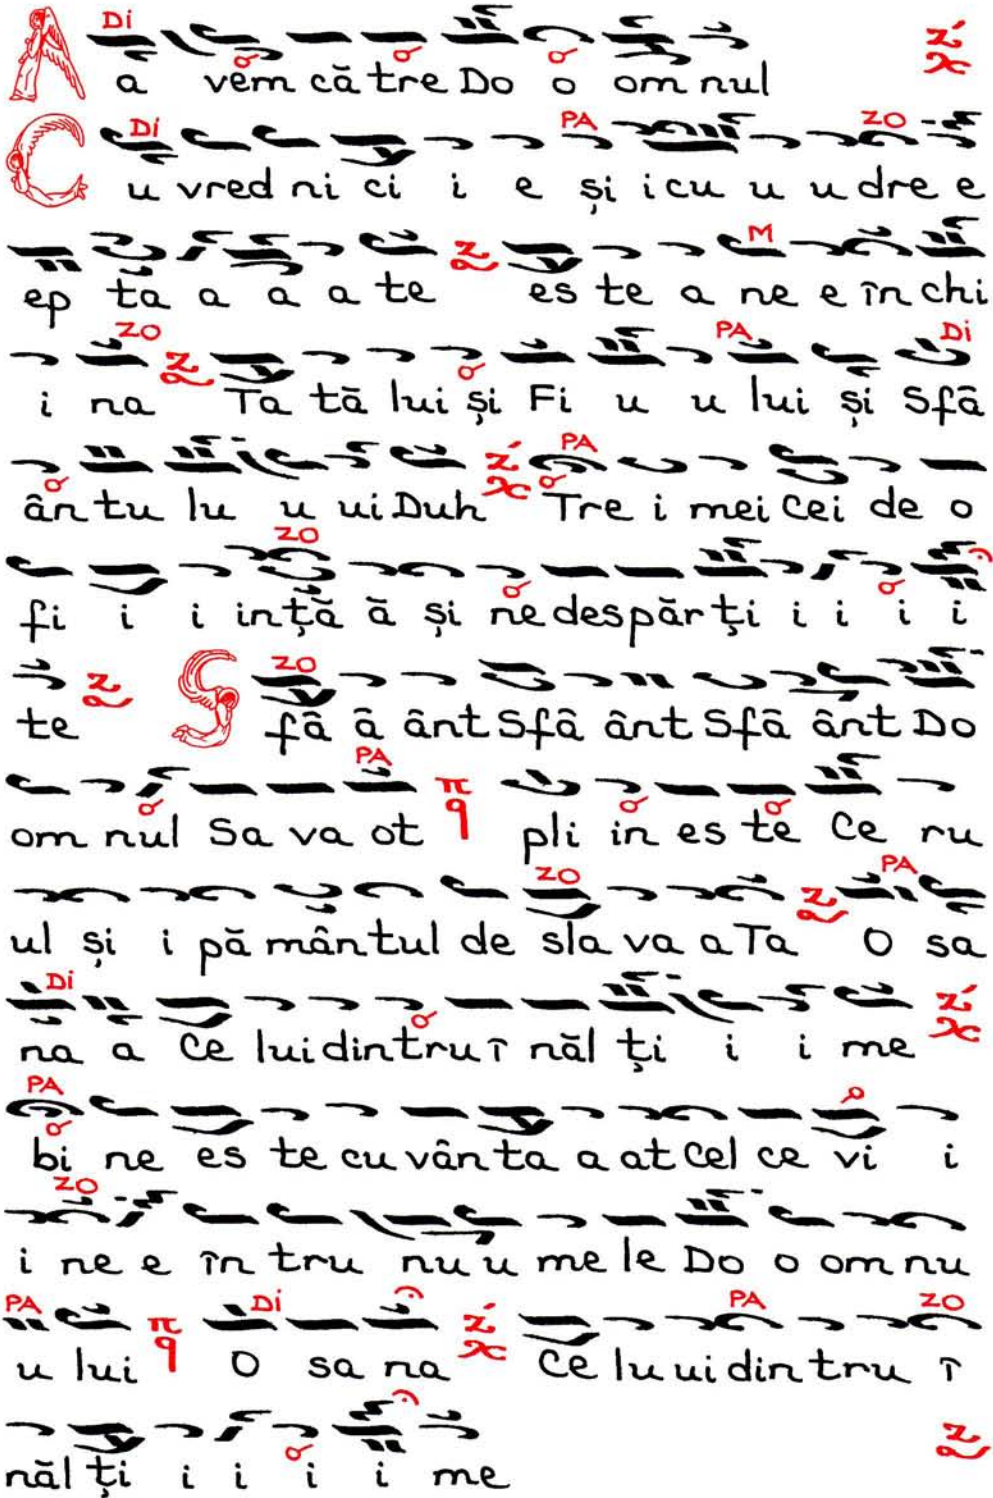 Di
A a vem că tre Do o om nul
Di PA ZO
C u vred ni ci i e și i cu u u dre e
M
ep ta a a a te es te a ne e în chi
ZO PA Di
i na Ta tă lui și Fi u u lui și Sfâ
PA
ân tu lu u ui Duh Tre i mei Cei de o
ZO
fi i i in ță ă și ne des păr ți i i i i
ZO
te S fâ â ânt Sfâ ânt Sfâ ânt Do
PA
om nul Sa va ot π q pli in es te Ce ru
ZO PA
ul și i pă mân tul de sla va a Ta O sa
Di
na a Ce lui din tru î năl ți i i me
PA
bi ne es te cu vân ta a at Cel ce vi i
ZO
i ne e în tru nu u me le Do o om nu
PA Di PA ZO
u lui π q O sa na Ce lu ui din tru î
năl ți i i i i me